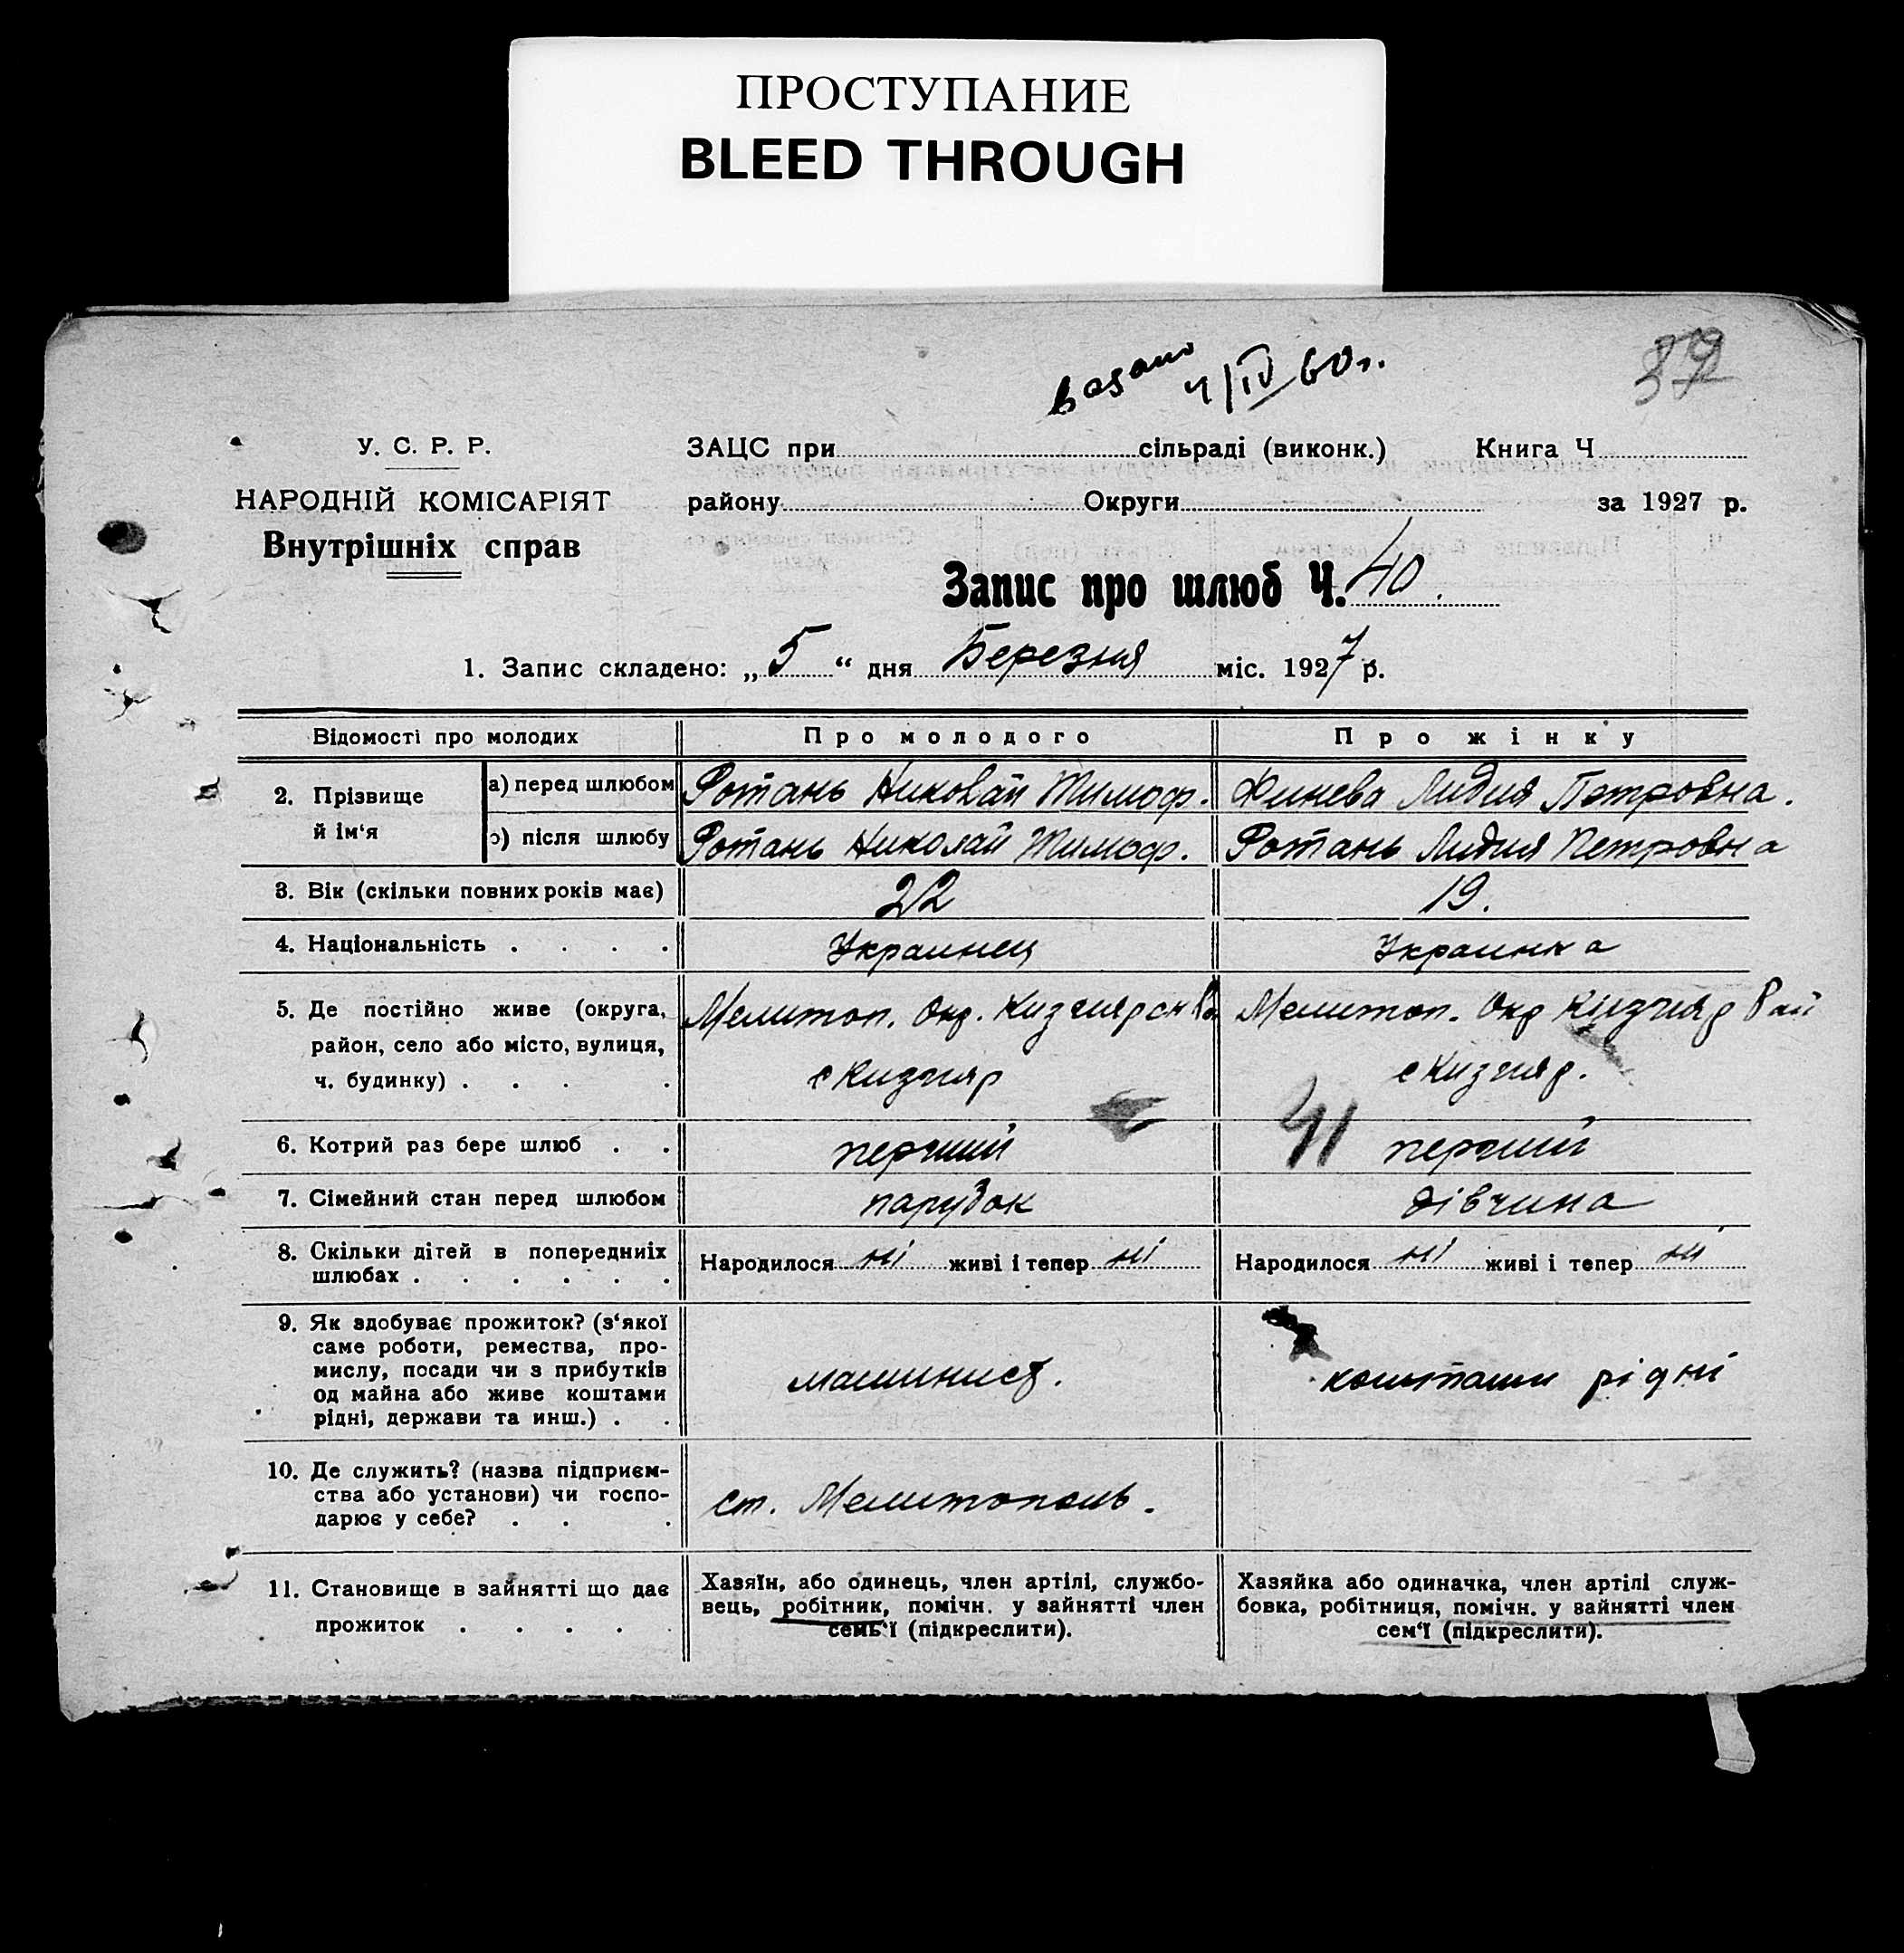 ПРОСТУПАНИЕ
BLEED THROUGH
4/IV 60 г.
У. С. Р. Р.
ЗАЦС при сільраді (виконк.) Книга Ч
НАРОДНІЙ КОМІСАРІЯТ
району Округи за 1927 р.
Внутрішніх справ
Запис про шлюб Ч. 40.
1. Запис складено: „ 5 “ дня Березня міс. 1927 р.
Відомості про молодих Про молодого Про жінку
2. Прізвище й ім‘я
а) перед шлюбом Ротань Николай Тимоф. Финева Лидия Петровна.
б) після шлюбу Ротань Николай Тимоф. Ротань Лидия Петровна
3. Вік (скільки повних років має) 22 19.
4. Національність . . . . Украинец Украинка
5. Де постійно живе (округа, Мелитоп. Окр. Кизиярск Мелитоп. Окр Кизияр Рай
район, село або місто, вулиця,
ч. будинку) . . . . с Кизияр с Кизияр.
41
6. Котрий раз бере шлюб . . перший перший
7. Сімейний стан перед шлюбом парубок дівчина
8. Скільки дітей в попередніх
шлюбах . . . . . . Народилося ні живі і тепер ні Народилося ні живі і тепер ні
9. Як здобуває прожиток? (з‘якої
саме роботи, ремества, про-
мислу, посади чи з прибутків
од майна або живе коштами
рідні, держави та инш.) . . машинист. коштами рідні
10. Де служить? (назва підприєм-
ства або установи) чи госпо-
дарює у себе? . . . ст. Мелитополь.
11. Становище в зайнятті що дає
прожиток . . . . .
Хазяїн, або одинець, член артілі, службо-
вець, робітник, помічн. у зайнятті член
семь‘ї (підкреслити).
Хазяйка або одиначка, член артілі служ-
бовка, робітниця, помічн. у зайнятті член
сем‘ї (підкреслити).